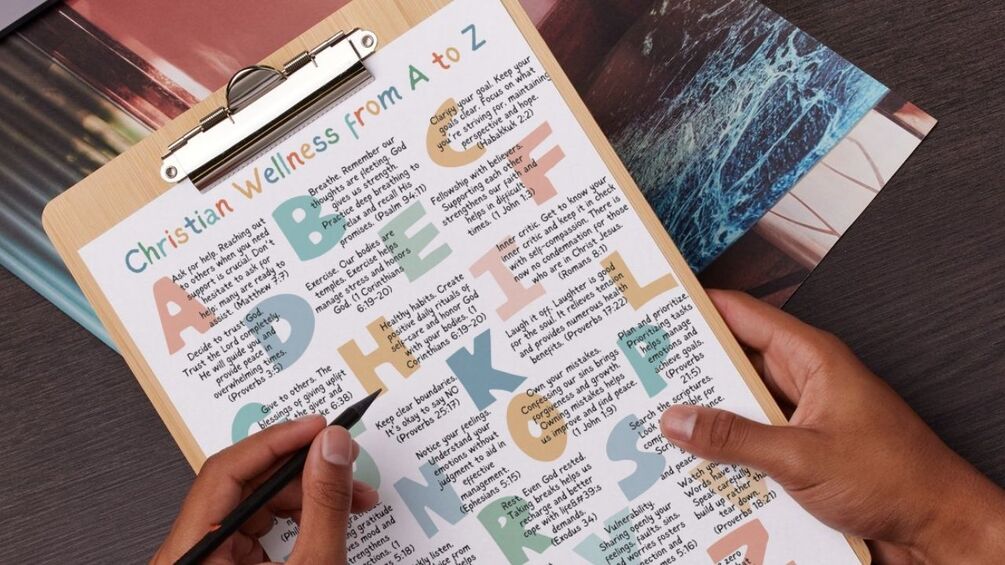 Christian Wellness from A to Z
A
Ask for help. Reaching out
to others when you need
support is crucial. Don't
hesitate to ask for
help; many are ready to
assist. (Matthew 7:7)
B
Breathe. Remember our
thoughts are fleeting. God
gives us strength.
Practice deep breathing to
relax and recall His
promises. (Psalm 94:11)
C
Clarify your goal. Keep your
goals clear. Focus on what
you're striving for, maintaining
perspective and hope.
(Habakkuk 2:2)
D
Decide to trust God.
Trust the Lord completely.
He will guide you and
provide peace in
overwhelming times.
(Proverbs 3:5)
E
Exercise. Our bodies are
temples. Exercise helps
manage stress and honors
God. (1 Corinthians
6:19-20)
F
Fellowship with believers.
Supporting each other
strengthens our faith and
helps in difficult
times. (1 John 1:3)
Give to others. The
blessings of giving uplift
the giver and
6:38)
H
Healthy habits. Create
positive daily rituals of
self-care and honor God
with your bodies. (1
Corinthians 6:19-20)
I
Inner critic. Get to know your
inner critic and keep it in check
with self-compassion. There is
now no condemnation for those
who are in Christ Jesus.
(Romans 8:1)
K
Keep clear boundaries.
It's okay to say NO
(Proverbs 25:17)
L
Laugh it off. Laughter is good
for the soul. It relieves tension
and provides numerous health
benefits. (Proverbs 17:22)
N
Notice your feelings.
Understand your
emotions without
judgment to aid in
effective
management.
(Ephesians 5:15)
O
Own your mistakes.
Confessing our sins brings
forgiveness and growth.
Owning mistakes helps
us improve and find peace.
(1 John 1:9)
P
Plan and prioritize.
Prioritizing tasks
helps manage
emotions and
achieve goals.
(Proverbs
21:5)
gratitude
mood and
5:18)
R
Rest. Even God rested.
Taking breaks helps us
recharge and better
cope with life&#39;s
demands.
(Exodus 34)
S
Search the scriptures.
Look
for
and peace
Vulnerability.
Sharing openly your
feelings, faults, sins,
and worries fosters
5:16)
Watch your
Words have
Speak carefully
build up rather than
tear down.
(Proverbs 18:21)
Z
zero
listen.
from